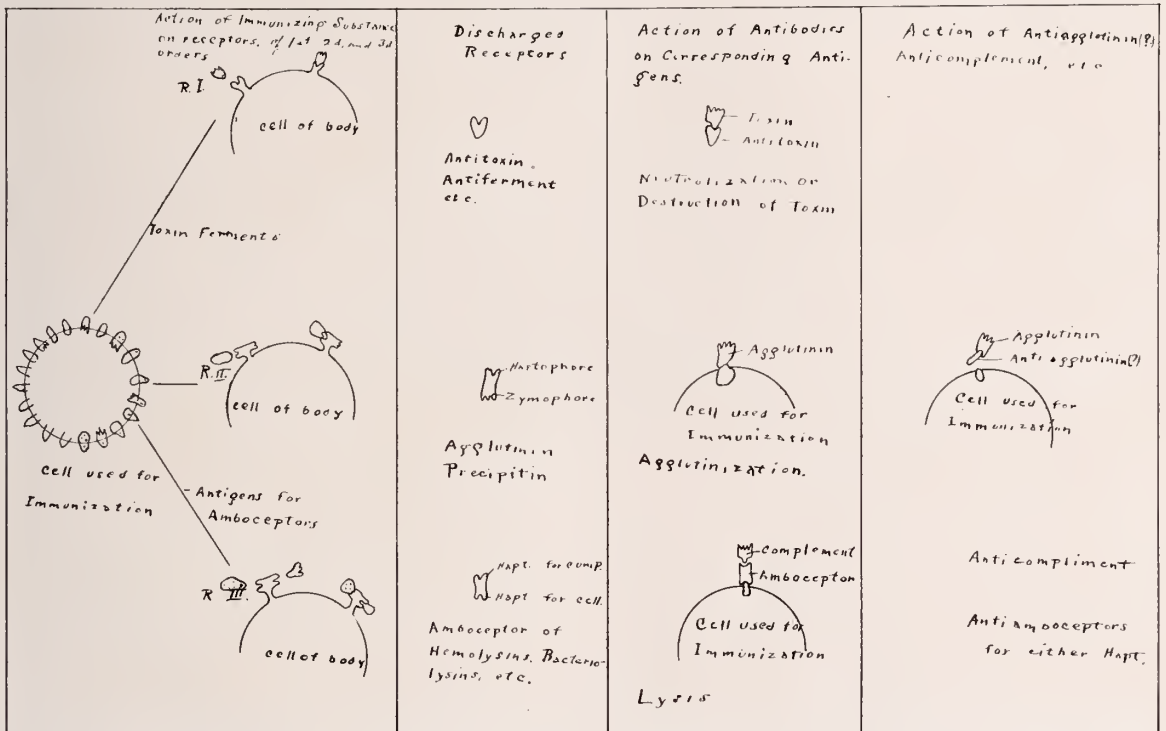 Action of Immunizing Substance
on receptors, of 1st 2d, and 3d
orders
R. I.
cell of body
Toxin Ferments
R. II.
cell of body
cell used for
Immunization
Antigens for
Amboceptors
R III.
cell of body
Discharged
Receptors
Antitoxin.
Antiferment
etc.
Haptophore
Zymophore
Agglutinin
Precipitin
Hapt. for comp.
Hapt for cell.
Amboceptor of
Hemolysins, Bacterio-
lysins, etc.
Action of Antibodies
on Corresponding Anti-
gens.
Toxin
Antitoxin
Neutralization Or
Destruction of Toxin
Agglutinin
Cell used for
Immunization
Agglutinization.
Complement
Amboceptor
Cell used for
Immunization
Lysis
Action of Antiagglutinin(?)
Anticomplement, etc
Agglutinin
Anti agglutinin(?)
Cell used for
Immunization
Anticompliment
Antiamboceptors
for either Hapt.